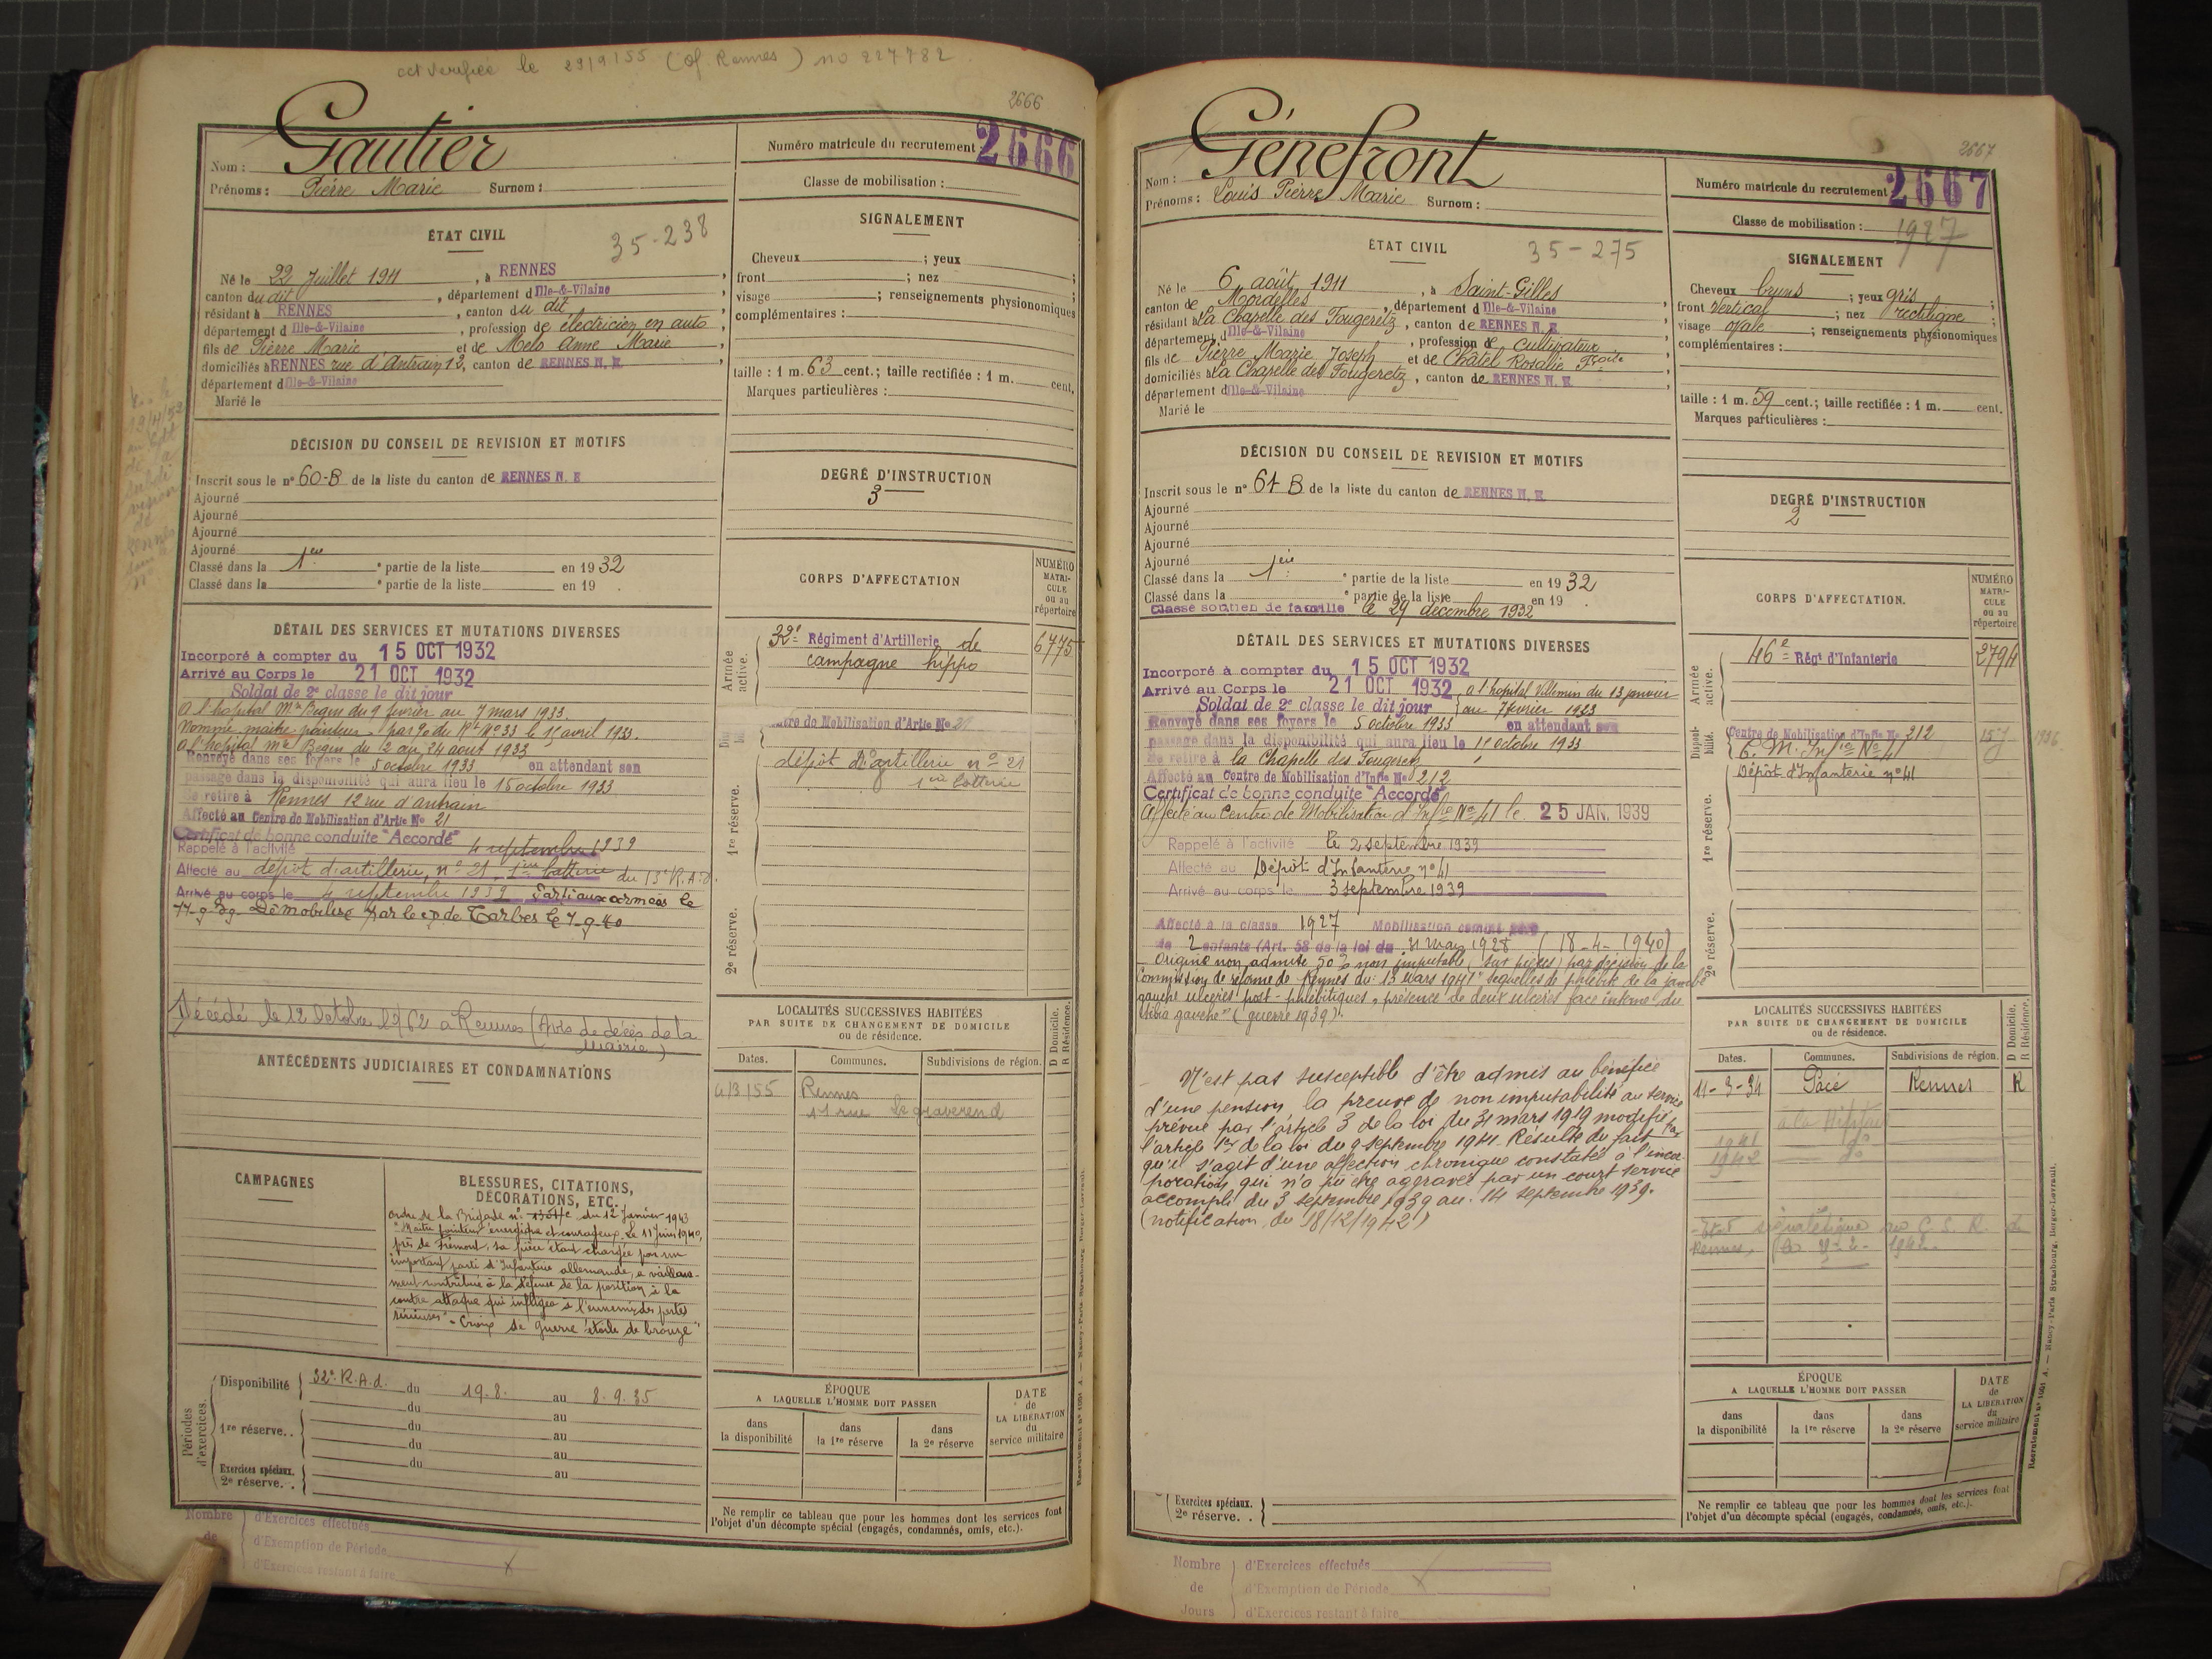 act verifiée le 23/9/55 (of Rennes) no 227782
2666
Nom : Gautier
Prénoms : Pierre Marie Surnom :
ÉTAT CIVIL
35-238
Né le 22 Juillet 1911, à RENNES
canton du dit, département d Ille-&-Vilaine
résidant à RENNES, canton du dit
département d Ille-&-Vilaine, profession de électricien en auto
fils de Pierre Marie et de Melo Anne Marie
domiciliés à RENNES rue d'Antrain 12, canton de RENNES N. E
département d Ille-&-Vilaine
Marié le
DÉCISION DU CONSEIL DE REVISION ET MOTIFS
Inscrit sous le n° 60-B de la liste du canton de RENNES N. E
Ajourné
Ajourné
Ajourné
Ajourné
Classé dans la 1ère partie de la liste en 1932
Classé dans la partie de la liste en 19
DÉTAIL DES SERVICES ET MUTATIONS DIVERSES
Incorporé à compter du 15 OCT 1932
Arrivé au Corps le 21 OCT 1932
Soldat de 2e classe le dit jour
à l'hôpital Mre Begin du 9 février au 7 mars 1933.
Nommé maître pointeur par Re N°33 le 15 avril 1933.
à l'hôpital Mre Begin du 12 au 24 août 1933
Renvoyé dans ses foyers le 5 octobre 1933 en attendant son
passage dans la disponibilité qui aura lieu le 15 octobre 1933
Se retire à Rennes 12 rue d'antrain
Affecté au Centre de Mobilisation d'Artie No 21
Certificat de bonne conduite "Accordé"
Rappelé à l'activité 4 septembre 1939
Affecté au dépôt d'artillerie, n° 21, 1ère batterie du 13e R.A.D.
Arrivé au corps le 4 septembre 1939 Parti aux armées le
17-9-39 Démobilisé par le de Tarbes le 7-9-40
Décédé le 12 Octobre 1962 à Rennes (Avis de décès de la
Mairie)
ANTÉCÉDENTS JUDICIAIRES ET CONDAMNATIONS
CAMPAGNES
BLESSURES, CITATIONS,
DÉCORATIONS, ETC.
ordre de la Brigade n° du 12 Janvier 1943
"Maître pointeur énergique et courageux. Le 11 Juin 1940,
près de Fremont, sa pièce étant chargée par un
important parti d'Infanterie allemande, a vaillam-
ment contribué à la défense de la position, à la
contre attaque qui infligea à l'ennemi des pertes
sérieuses" - Croix de guerre étoile de bronze"
Périodes d'exercices.
Disponibilité 32e R.A.d. du 19.8. au 8.9.35
du au
1re réserve.. du au
du au
Exercices spéciaux. du au
2e réserve. .
Nombre de
d'Exercices effectués
d'Exemption de Période
d'Exercices restant à faire
Numéro matricule du recrutement 2666
Classe de mobilisation :
SIGNALEMENT
Cheveux ; yeux ;
front ; nez ;
visage ; renseignements physionomiques
complémentaires :
taille : 1 m. 63 cent. ; taille rectifiée : 1 m. cent.
Marques particulières :
DEGRÉ D'INSTRUCTION
3
CORPS D'AFFECTATION
NUMÉRO MATRI-CULE ou au répertoire
Armée active.
32e Régiment d'Artillerie de 6775
campagne hippo
Centre de Mobilisation d'Artie No 21
dépôt d'artillerie n° 21
1ère batterie
1re réserve.
2e réserve.
LOCALITÉS SUCCESSIVES HABITÉES
PAR SUITE DE CHANGEMENT DE DOMICILE
ou de résidence.
D Domicile. R Résidence.
Dates. Communes. Subdivisions de région.
4/3/55 Rennes
11 rue le graverend
ÉPOQUE
A LAQUELLE L'HOMME DOIT PASSER
dans la disponibilité
dans la 1re réserve
dans la 2e réserve
DATE de LA LIBÉRATION du service militaire
Ne remplir ce tableau que pour les hommes dont les services font
l'objet d'un décompte spécial (engagés, condamnés, omis, etc.).
2667
Nom : Génefront
Prénoms : Louis Pierre Marie Surnom :
ÉTAT CIVIL
35-275
Né le 6 août 1911, à Saint-Gilles
canton de Mordelles, département d Ille-&-Vilaine
résidant à La Chapelle des Fougeretz, canton de RENNES N. E
département d Ille-&-Vilaine, profession de cultivateur
fils de Pierre Marie Joseph et de Châtel Rosalie Fçoise
domiciliés à La Chapelle des Fougeretz, canton de RENNES N. E
département d Ille-&-Vilaine
Marié le
DÉCISION DU CONSEIL DE REVISION ET MOTIFS
Inscrit sous le n° 61 B de la liste du canton de RENNES N. E
Ajourné
Ajourné
Ajourné
Ajourné
Classé dans la 1ère partie de la liste en 1932
Classé dans la partie de la liste en 19
Classé soutien de famille le 29 décembre 1932
DÉTAIL DES SERVICES ET MUTATIONS DIVERSES
Incorporé à compter du 15 OCT 1932
Arrivé au Corps le 21 OCT 1932 à l'hôpital Villemin du 13 janvier
Soldat de 2e classe le dit jour au 7 février 1933
Renvoyé dans ses foyers le 5 octobre 1933 en attendant son
passage dans la disponibilité qui aura lieu le 15 octobre 1933
Se retire à la Chapelle des Fougeretz
Affecté au Centre de Mobilisation d'Infie No 212
Certificat de bonne conduite "Accordé"
Affecté au Centre de Mobilisation d'Infie No 41 le 25 JAN. 1939
Rappelé à l'activité le 2 septembre 1939
Affecté au Dépôt d'Infanterie n°41
Arrivé au corps le 3 septembre 1939
Affecté à la classe 1927 Mobilisation comme père
de 2 enfants (Art. 58 de la loi du 31 Mars 1928 (18-4-1940)
Origine non admise 50% non imputable (sur pièces) par décision de la
Commission de réforme de Rennes du 13 Mars 1941 "séquelles de phlébite de la jambe
gauche ulcères post-phlébitiques, présence de deux ulcères face interne du
tibia gauche" (guerre 1939).
N'est pas susceptible d'être admis au bénéfice
d'une pension, la preuve de non imputabilité au service
prévue par l'article 3 de la loi du 31 mars 1919 modifié par
l'article 1er de la loi du 9 septembre 1941. Résulte du fait
qu'il s'agit d'une affection chronique constatée à l'incor
poration, qui n'a pu être aggravée par un court service
accompli du 3 septembre 1939 au 14 septembre 1939.
(notification du 18/12/1942)
Exercices spéciaux.
2e réserve. .
Nombre de Jours
d'Exercices effectués
d'Exemption de Période
d'Exercices restant à faire
Numéro matricule du recrutement 2667
Classe de mobilisation : 1927
SIGNALEMENT
Cheveux bruns ; yeux gris ;
front vertical ; nez rectiligne ;
visage ovale ; renseignements physionomiques
complémentaires :
taille : 1 m. 59 cent. ; taille rectifiée : 1 m. cent.
Marques particulières :
DEGRÉ D'INSTRUCTION
2
CORPS D'AFFECTATION.
NUMÉRO MATRI-CULE ou au répertoire
Armée active.
46e Régt d'Infanterie 2794
Disponibilité.
Centre de Mobilisation d'Infie No 212
C. M. Infie No 41
Dépôt d'Infanterie n°41
1re réserve.
2e réserve.
LOCALITÉS SUCCESSIVES HABITÉES
PAR SUITE DE CHANGEMENT DE DOMICILE
ou de résidence.
D Domicile. R Résidence.
Dates. Communes. Subdivisions de région.
11-3-34 Pacé Rennes R
1941 do
1942 do
Etat signalétique au C.S.R. de
Rennes,
ÉPOQUE
A LAQUELLE L'HOMME DOIT PASSER
dans la disponibilité
dans la 1re réserve
dans la 2e réserve
DATE de LA LIBÉRATION du service militaire
Ne remplir ce tableau que pour les hommes dont les services font
l'objet d'un décompte spécial (engagés, condamnés, omis, etc.).